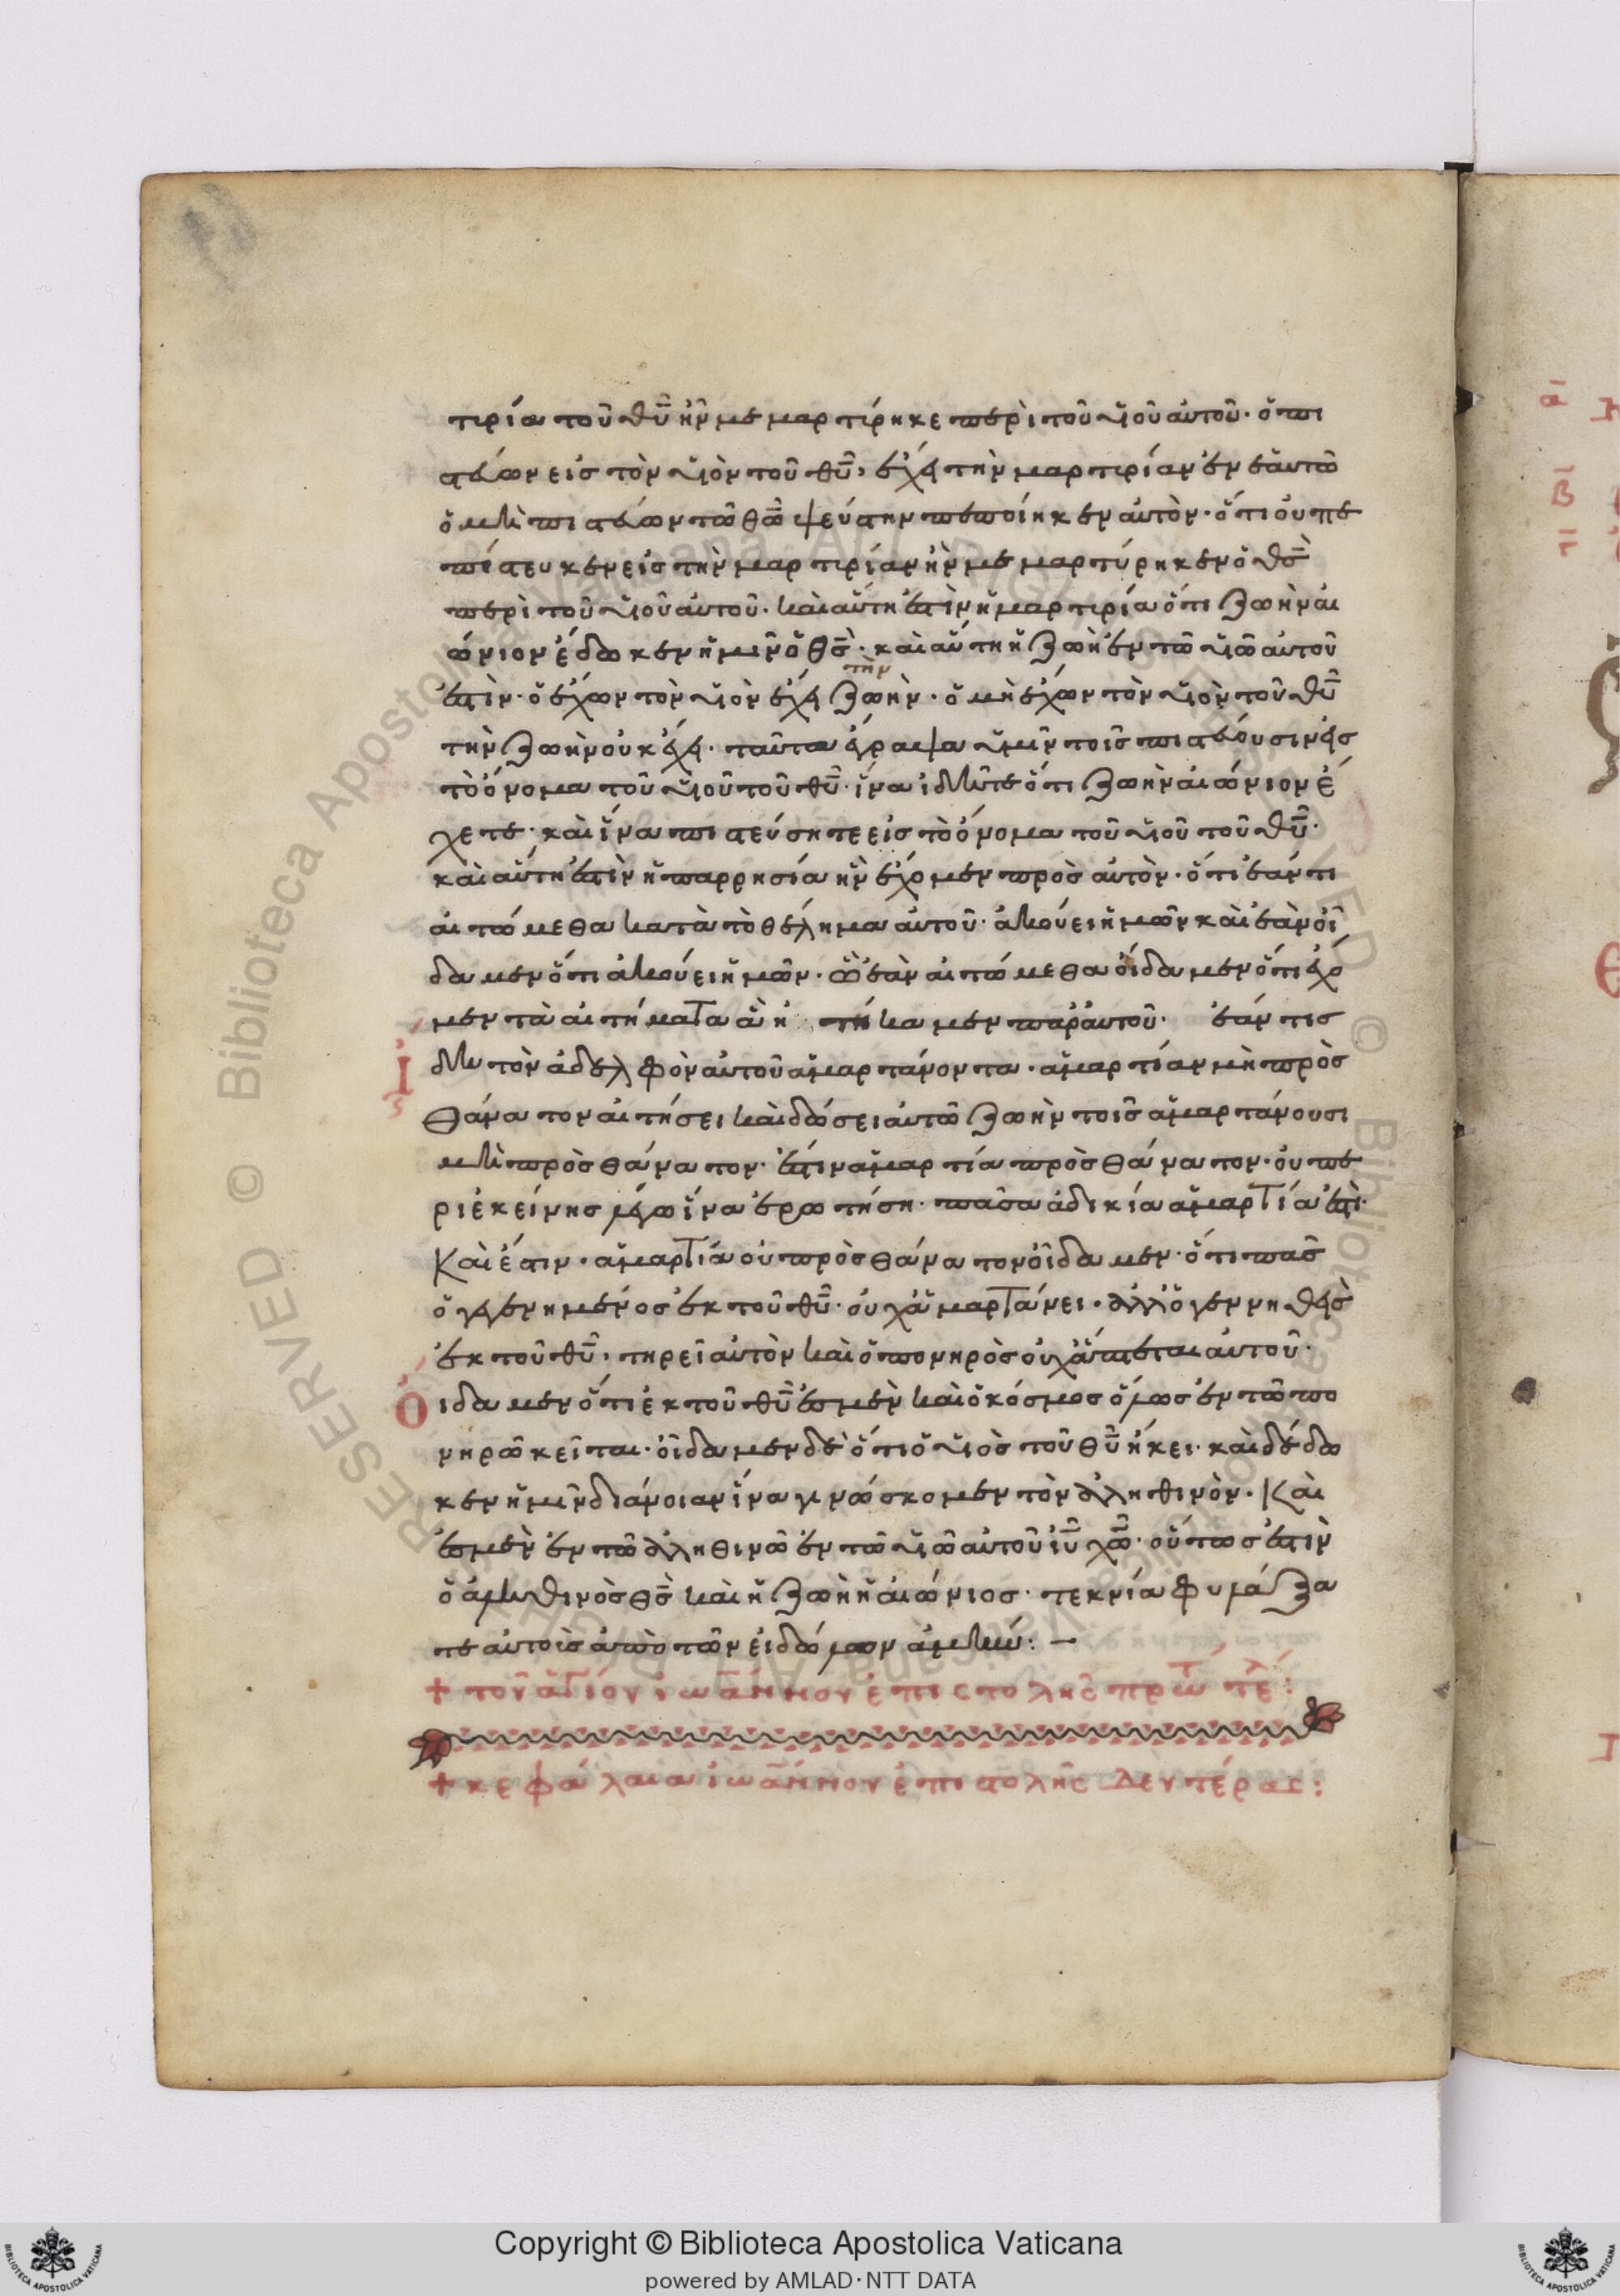 τιρία τοῦ θῦ ἣν μεμαρτίρηκε περὶ τοῦ υἱοῦ αὐτοῦ· ὁ πι
στεύων εἰς τὸν υἱὸν τοῦ θῦ, ἔχει τὴν μαρτιρίαν ἐν ἑαυτῶ
ὁ μὴ πιστεύων τῶ θῶ ψεύστην πεποίηκεν αὐτὸν· ὅτι οὐ πε
πίστευκεν εἰς τὴν μαρτιρίαν ἣν μεμαρτύρηκεν ὁ θς
περὶ τοῦ υἱοῦ αὐτοῦ· καὶ αὕτη ἐστὶν ἡ μαρτιρία ὅτι ζωὴν αἰ
ώνιον ἔδωκεν ἡμῖν ὁ θς· καὶ αὕτη ἡ ζωὴ ἐν τῶ υἱῶ αὐτοῦ
τὴν
ἐστὶν· ὁ ἔχων τὸν υἱὸν ἔχει ζωὴν· ὁ μὴ ἔχων τὸν υἱὸν τοῦ θῦ
τὴν ζωὴν οὐκ ἔχει· ταῦτα ἔγραψα ὑμῖν τοῖς πιστεύουσιν εἰς
τὸ ὄνομα τοῦ υἱοῦ τοῦ θῦ· ἵνα ἰδῆτε ὅτι ζωὴν αἰώνιον ἔ
χετε· καὶ ἵνα πιστεύσητε εἰς τὸ ὄνομα τοῦ υἱοῦ τοῦ θῦ·
καὶ αὕτη ἐστὶν ἡ παρρησία ἣν ἔχομεν πρὸς αὐτὸν· ὅτι ἐάν τι
αἰτώμεθα κατὰ τὸ θέλημα αὐτοῦ· ἀκούει ἡμῶν καὶ ἐὰν οἴ
δαμεν ὅτι ἀκούει ἡμῶν· ὃ ἐὰν αἰτώμεθα οἴδαμεν ὅτι ἔχο
μεν τὰ αἰτήματα ἃ ἠ τήκαμεν παρ' αὐτοῦ· ἐάν τις
ἴδη τὸν ἀδελφὸν αὐτοῦ ἁμαρτάνοντα· ἁμαρτίαν μὴ πρὸς
θάνατον αἰτήσει καὶ δώσει αὐτῶ ζωὴν τοῖς ἁμαρτάνουσι
μὴ πρὸς θάνατον· ἔστιν ἁμαρτία πρὸς θάνατον· οὐ πε
ρὶ ἐκείνης λέγω ἵνα ἐρωτήση· πᾶσα ἀδικία ἁμαρτία ἐστὶ·
Καὶ ἔστιν· ἁμαρτία οὐ πρὸς θάνατον οἴδαμεν· ὅτι πᾶς
ὁ γεγενημένος ἐκ τοῦ θῦ· οὐχ ἁμαρτάνει· ἀλλ' ὁ γεννηθεὶς
ἐκ τοῦ θῦ, τηρεῖ αὐτὸν καὶ ὁ πονηρὸς οὐχ ἅπτεται αὐτοῦ·
Οἴδαμεν ὅτι ἐκ τοῦ θῦ ἐσμὲν καὶ ὁ κόσμος ὅλως ἐν τῶ πο
νηρῶ κεῖται· οἴδαμεν δὲ ὅτι ὁ υἱὸς τοῦ θῦ ἥκει· καὶ δέδω
κεν ἡμῖν διάνοιαν ἵνα γινώσκομεν τὸν ἀληθινὸν· Καὶ
ἐσμὲν ἐν τῶ ἀληθινῶ ἐν τῶ υἱῶ αὐτοῦ ἰῦ χῶ· οὗτος ἐστὶν
ὁ ἀληθινὸς θς καὶ ἡ ζωὴ ἡ αἰώνιος· τεκνία φυλάξα
τε αὐτοῖς ἀπὸ τῶν εἰδώλων ἀμήν: —
+ τοῦ ἁγίου ἰωάννου ἐπιστολῆς πρώτ τέλ:
+ κεφάλαια ἰωάννου ἐπιστολῆς δευτέρας:
Copyright © Biblioteca Apostolica Vaticana
powered by AMLAD·NTT DATA